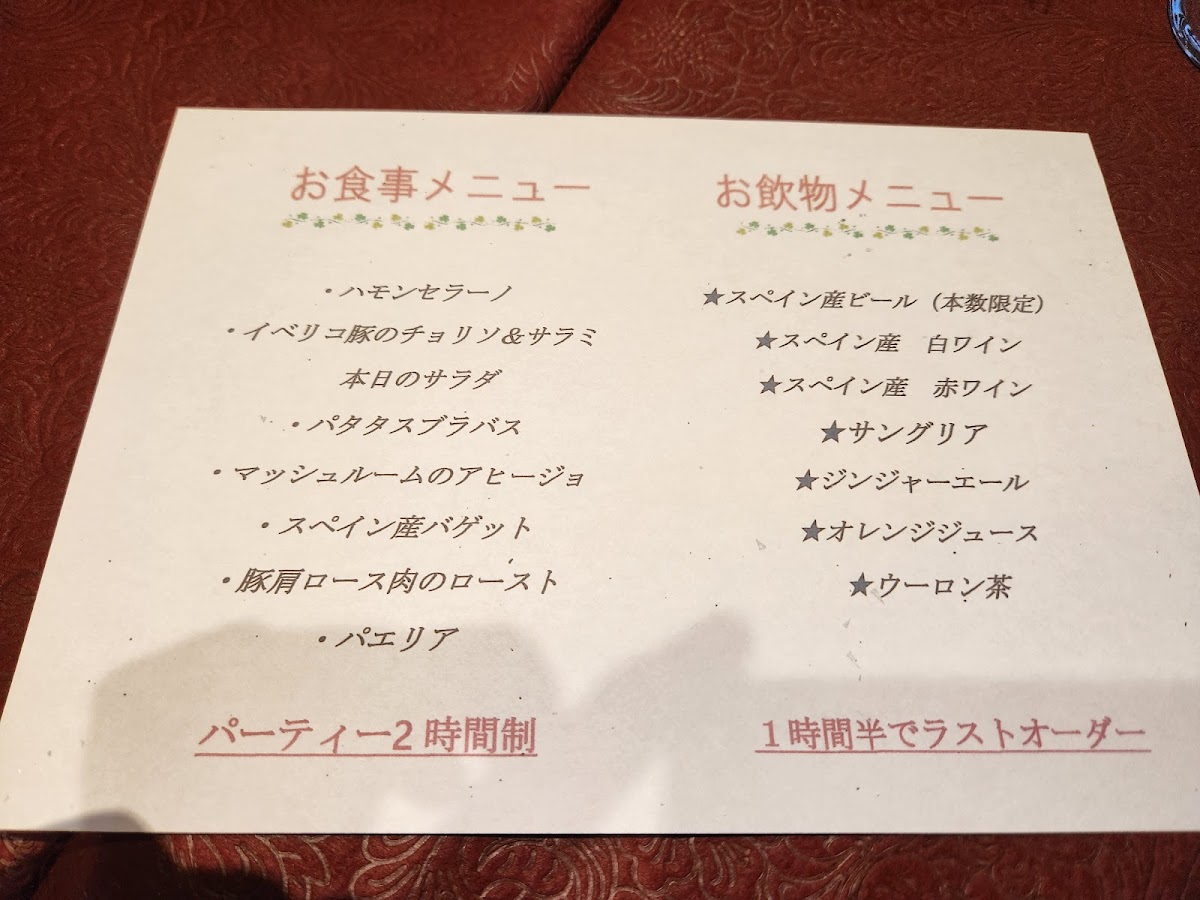 お食事メニュー
・ハモンセラーノ
・イベリコ豚のチョリソ＆サラミ
本日のサラダ
・パタタスブラバス
・マッシュルームのアヒージョ
・スペイン産バゲット
・豚肩ロース肉のロースト
・パエリア
パーティー2時間制
お飲物メニュー
★スペイン産ビール（本数限定）
★スペイン産　白ワイン
★スペイン産　赤ワイン
★サングリア
★ジンジャーエール
★オレンジジュース
★ウーロン茶
１時間半でラストオーダー